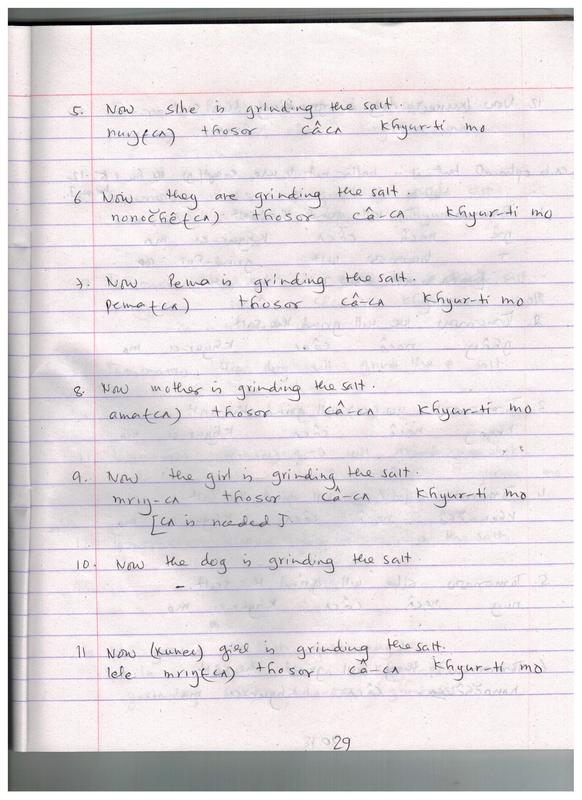 5. Now s/he is grinding the salt.
nuŋ(-cʌ) thosor câcʌ khyur-ti mo
6. Now they are grinding the salt.
nonočhê(-cʌ) thosor câ-cʌ khyur-ti mo
7. Now Pema is grinding the salt.
pema(-cʌ) thosor câ-cʌ khyur-ti mo
8. Now mother is grinding the salt.
ama(-cʌ) thosor câ-cʌ khyur-ti mo
9. Now the girl is grinding the salt.
mriŋ-cʌ thosor câ-cʌ khyur-ti mo
[cʌ is needed]
10. Now the dog is grinding the salt.
–
11 Now (Kunec) girl is grinding the salt.
lele mriŋ(-cʌ) thosor câ-cʌ khyur-ti mo
29